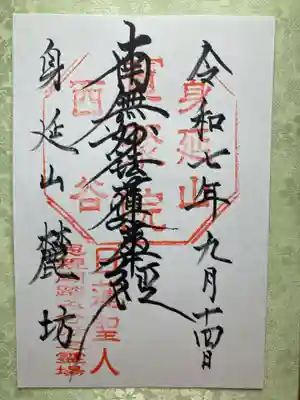 令和七年九月十四日
身延山
西谷
南無妙法蓮華経
日蓮聖人
霊場
身延山 麓坊